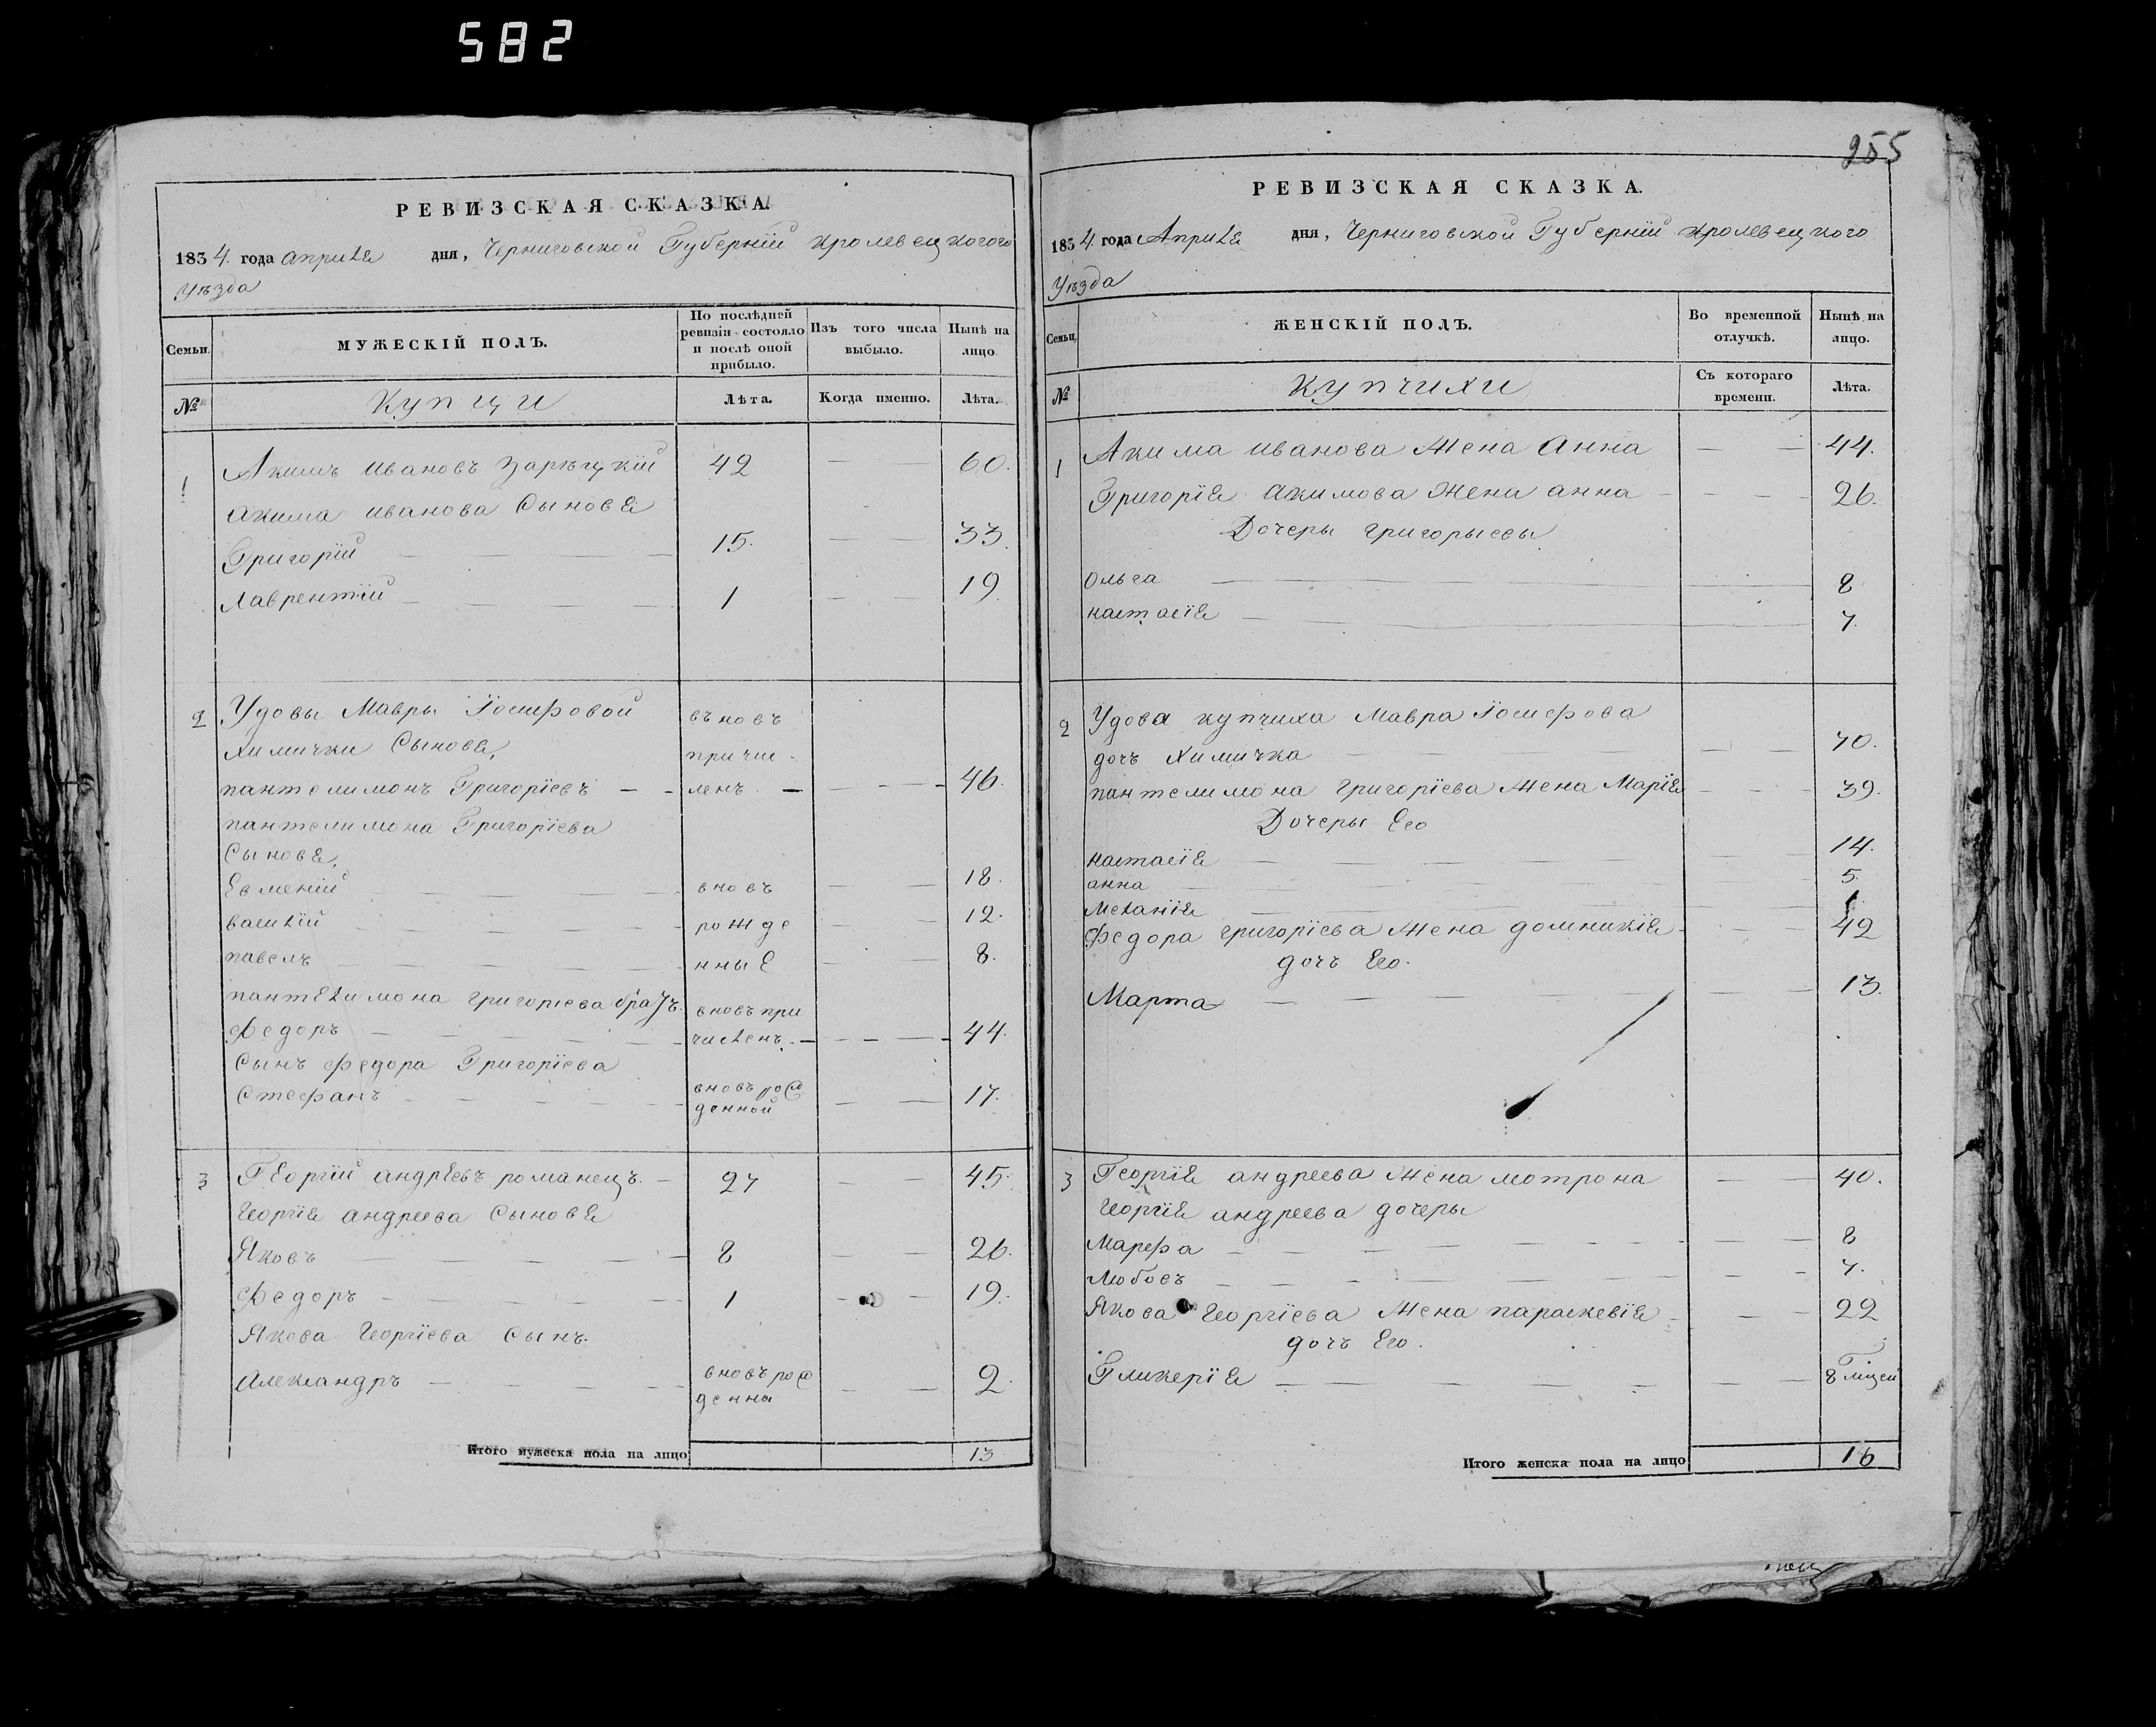 582
255
РЕВИЗСКАЯ СКАЗКА.
1834. года априля дня, Черниговской Губерніи кролевецкогого
Уѣзда
Семьи. МУЖЕСКІЙ ПОЛЪ. По послѣдней ревизіи состояло и послѣ оной прибыло. Изъ того числа выбыло. Нынѣ на лицо
№ Купци Лѣта. Когда именно. Лѣта.
1 Акимъ Ивановъ Зарѣцкій 42 — — 60.
Акима иванова Сыновя
Григорій — — — 15. — — 33.
Лаврентій — — — — 1 — — 19.
2 Удовы Мавры Іосифовой въновъ
Химички Сыновя, причис-
пантелимонъ Григоріевъ — - ленъ. — — - - 46.
пантелимона Григоріева
Сыновя,
Евменій — — — — вновъ — — 18.
василій — — — — рожде — — 12.
павелъ — — — — нные — — 8.
пантелимона григориева братъ. вновъ при
Федоръ — — — — численъ. — — - — 44.
Сынъ федора Григоріева
Стефанъ — — — — вновъ рож
денной — — 17.
3 Георгій андреевъ романецъ. — 27 — — 45.
Георгія андреева Сыновя
Яковъ — — — — 8 — — 26.
Федоръ — — — — 1 — — 19.
Якова Георгіева Сынъ.
Александръ — — — — вновъ рож
денны — — 2.
Итого мужеска пола на лицо 13
РЕВИЗСКАЯ СКАЗКА.
1834. года Априля дня, Черниговской Губерніи кролевецкого
Уѣзда
Семьи. ЖЕНСКІЙ ПОЛЪ. Во временной отлучкѣ. Нынѣ на лицо.
№ Купчихи Съ котораго времени. Лѣта.
1 Акима иванова Жена Анна — — 44.
Григорія Акимова Жена анна — — — 26.
Дочеры григорьевы
Ольга — — — 8
настасія — — — 7.
2 Удова купчиха Мавра Іосифова
дочъ Химичка — — — 70.
пантелимона григоріева Жена Марія — — — 39.
Дочеры Его
настасія — — — 14.
анна — — — 5.
Меланія — — — 1
Федора григоріева Жена домникія — — — 42
дочъ Его.
Марта — — — 13.
3 Георгія андреева Жена мотрона — — 40.
Георгія андреева дочеры
Марфа — — — 8
Любовъ — — — 7.
Якова Георгіева Жена параскевія — — — 22
дочъ Его.
Гликерія — — — 8
Итого женска пола на лицо 16